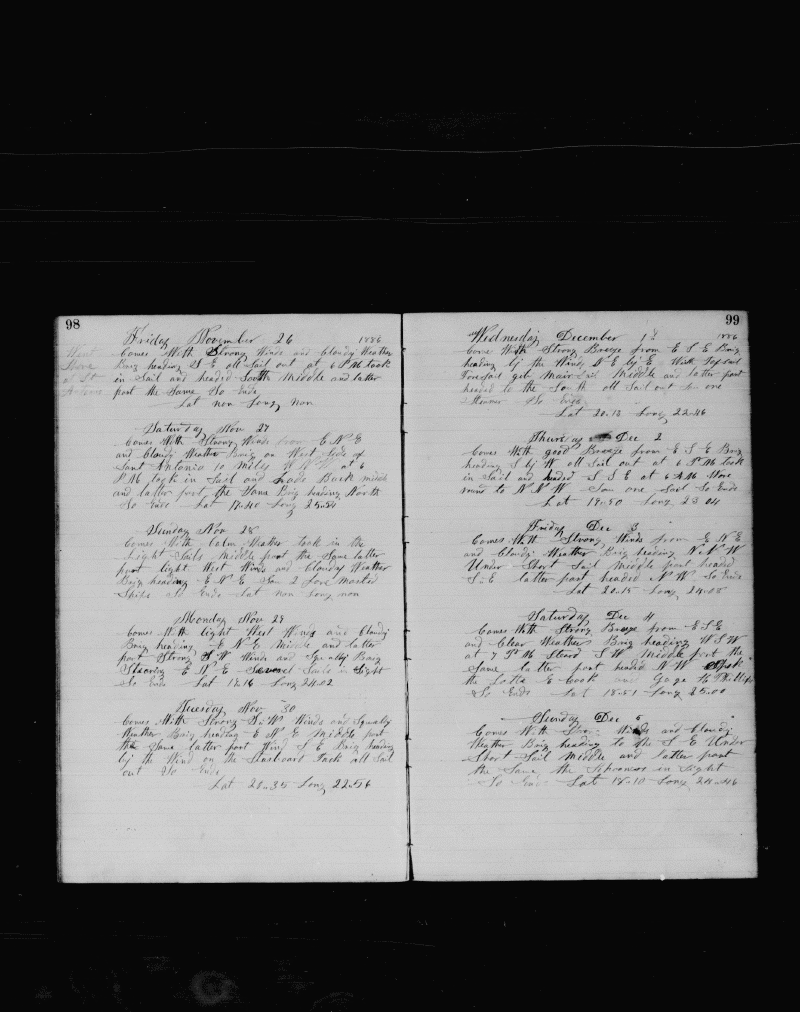 98
Friday November 26 1886
Comes With Strong Winds and Cloudy Weather
Brig heading S E all Sail out at 6 P M took
in Sail and headed South Middle and latter
part the Same So Ends
Lat non Long non
Went
Shore
at St
Antonio
Saturday Nov 27
Comes With Strong Winds from E N E
and Cloudy Weather Brig on West Side of
Sant Antonio 10 Miles at 6
P M took in Sail and Back
and latter part the Same Brig heading North
So Ends Lat 17-40 Long 25-
Sunday Nov 28
Comes With Calm Weather took in the
Light Sails Middle part the Same latter
part light West Winds and Cloudy Weather
Brig heading E N E Saw 2 Fore Masted
Ships So Ends Lat non Long non
Monday Nov 29
Comes With light West Winds and Cloudy
Brig heading E N E Middle and latter
part Strong S W Winds and Squally Brig
Stearing E N E Several Sails in Sight
So Ends Lat 19-16 Long 24-02
Tuesday Nov 30
Comes With Strong S-W Winds and Squaly
Weather Brig heading E N E Middle part
the Same latter part Wind S E Brig heading
by the Wind on the Tack all Sail
out So Ends
Lat 20-35 Long 22-56
99
Wednesday December 1st 1886
Comes With Strong Breeze from E S E Brig
heading by the Wind N E by E With Topsail
Foresail Middle and latter part
headed to the all Sail out one
Steamer So Ends
Lat 20-13 Long 22-46
Thursday Dec 2
Comes With good Breeze from E S E Brig
heading S by W all Sail out at 6 P M took
in Sail and headed S S E at 6 A M Wore
round to N N W Saw one Sail So Ends
Lat 19-50 Long 23-04
Friday Dec 3
Comes With Strong Winds from E N E
and Cloudy Weather Brig heading N N W
Under Short Sail Middle part headed
S-E latter part headed N W So Ends
Lat 20-15 Long 24-08
Saturday Dec 4
Comes With Strong Breeze from E S E
and Clear Weather Brig heading W S W
at 7 P M Steard S W Middle part the
Same latter part headed N W Spok
the Lottie E Cook and Gage H Phillips
So Ends Lat 18-51 Long 25-00
Sunday Dec 5
Comes With Strong Winds and Cloudy
Weather Brig heading to the S E Under
Short Sail Middle and latter part
the Same the in Sight
So Ends Lat 18-10 Long 24-46